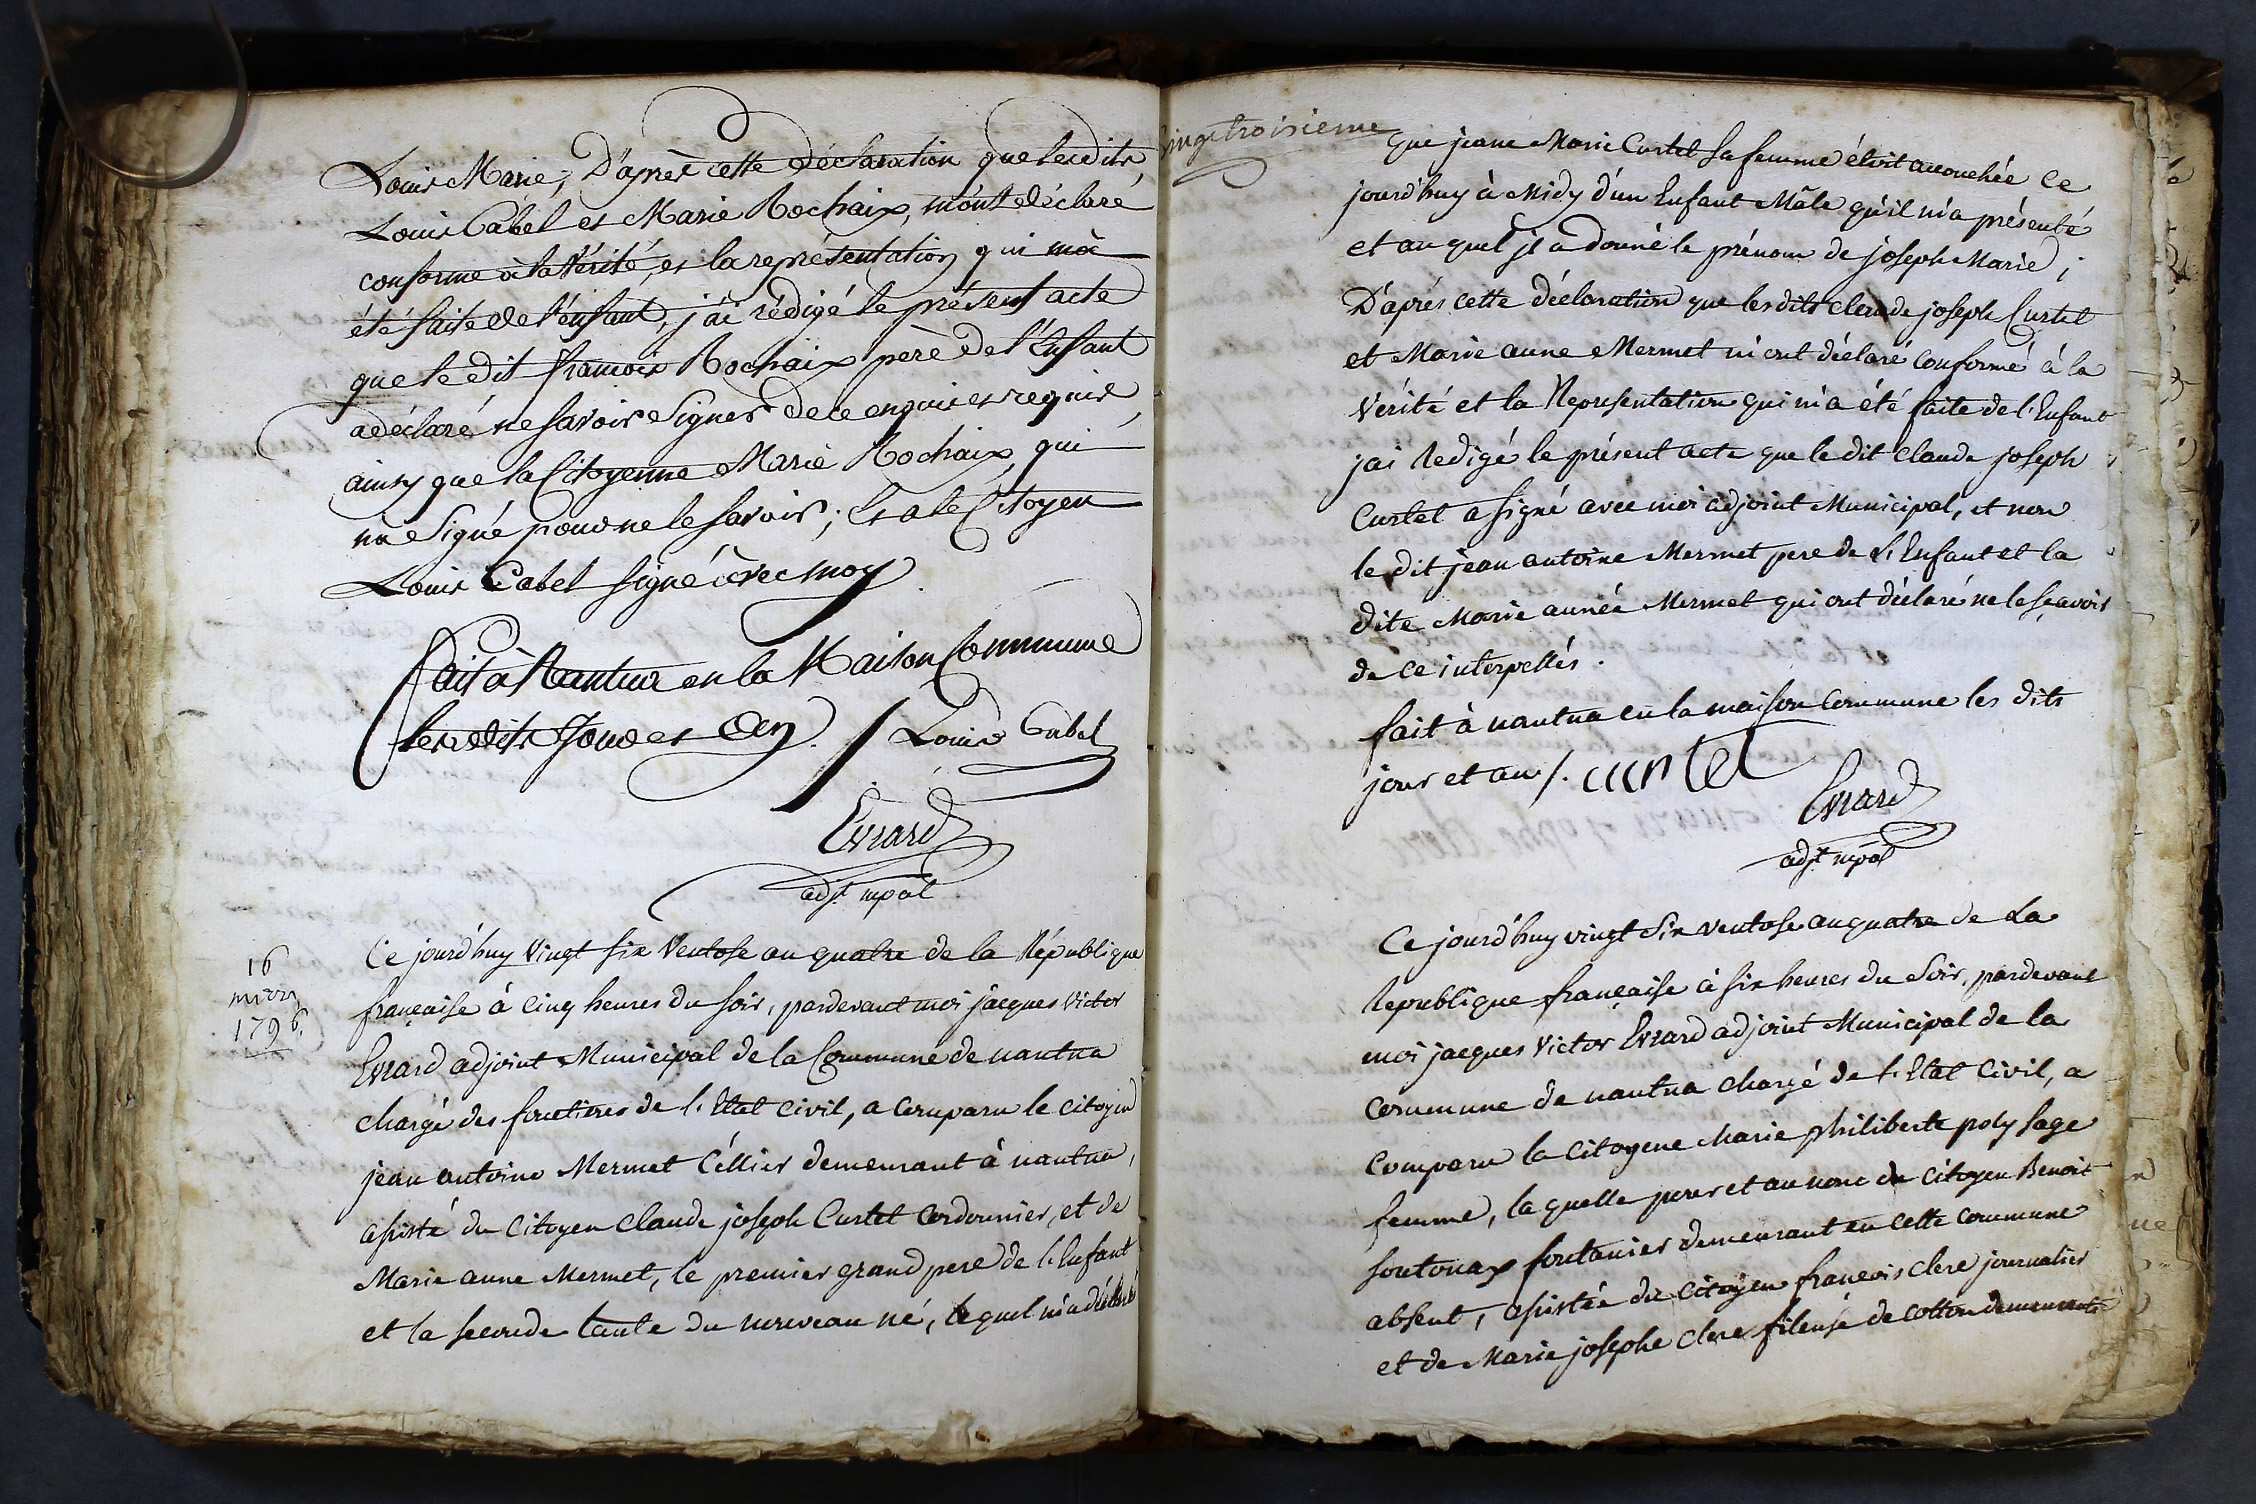 Louis Marie; D'après cette déclaration que lesdits,
Louis Cabel et Marie Rochaix, m'ont déclaré
conforme à la Vérité, et la représentation qui m'a
été faite de l'enfant, j'ai rédigé le présent acte
que le dit françois Rochaix père de l'Enfant
a déclaré ne savoir Signer de ce enquis et requis,
ainsy que la Citoyenne Marie Rochaix, qui
na Signé pour ne le savoir; Et a le Citoyen
Louis Cabel signé avec moy.
fait à Nantua en la Maison Commune
les dits Jour et an. / Louis Cabel
Evrard
adjt. mpal
16
mars
1796.
Ce jourd'huy Vingt six Ventose an quatre de la République
française à cinq heures du soir, pardevant moi jacques Victor
Evrard adjoint Municipal de la Commune de nantua
chargé des fonctions de l'Etat civil, a comparu le citoyen
jean antoine Mermet Cellier demeurant à nantua,
assisté du Citoyen Claude joseph Curtet Cordonnier, et de
Marie anne Mermet, le premier grand pere de l'Enfant
et la seconde tante du nouveau né, lequel m'a déclaré
vingttroisieme
que jeane Marie Curtet sa femme étoit accouchée ce
jourd'huy à Midy d'un Enfant Mâle qu'il m'a présenté
et auquel jl a donné le prénom de joseph Marie;
D'après cette déclaration que les dits claude joseph Curtet
et Marie anne Mermet m'ont déclaré conforme à la
Vérité et la Representation qui m'a été faite de l'Enfant
jai Redigé le présent acte que le dit Claude joseph
Curtet a signé avec moi adjoint Municipal, et non
le dit jean antoine Mermet pere de L'Enfant et la
dite Marie année Mermet qui ont déclaré ne le sçavoir
de ce interpellés.
fait à nantua en la maison Commune les dits
jour et an /. curtet
Evrard
adjt. mpal
Ce jourd'huy vingt Six ventose an quatre de La
Republique française à six heures du Soir, pardevant
moi jacques Victor Evrard adjoint Municipal de la
Commune de nantua chargé de l'Etat Civil, a
Comparu la Citoyene Marie philiberte poly sage
femme, la quelle pour et au nom du Citoyen Benoit
soutonax fontanier demeurant en cette Commune
absent, assistée du Citoyen françois clere journalier
et de Marie josephe clere fileuse de cotton demeurants